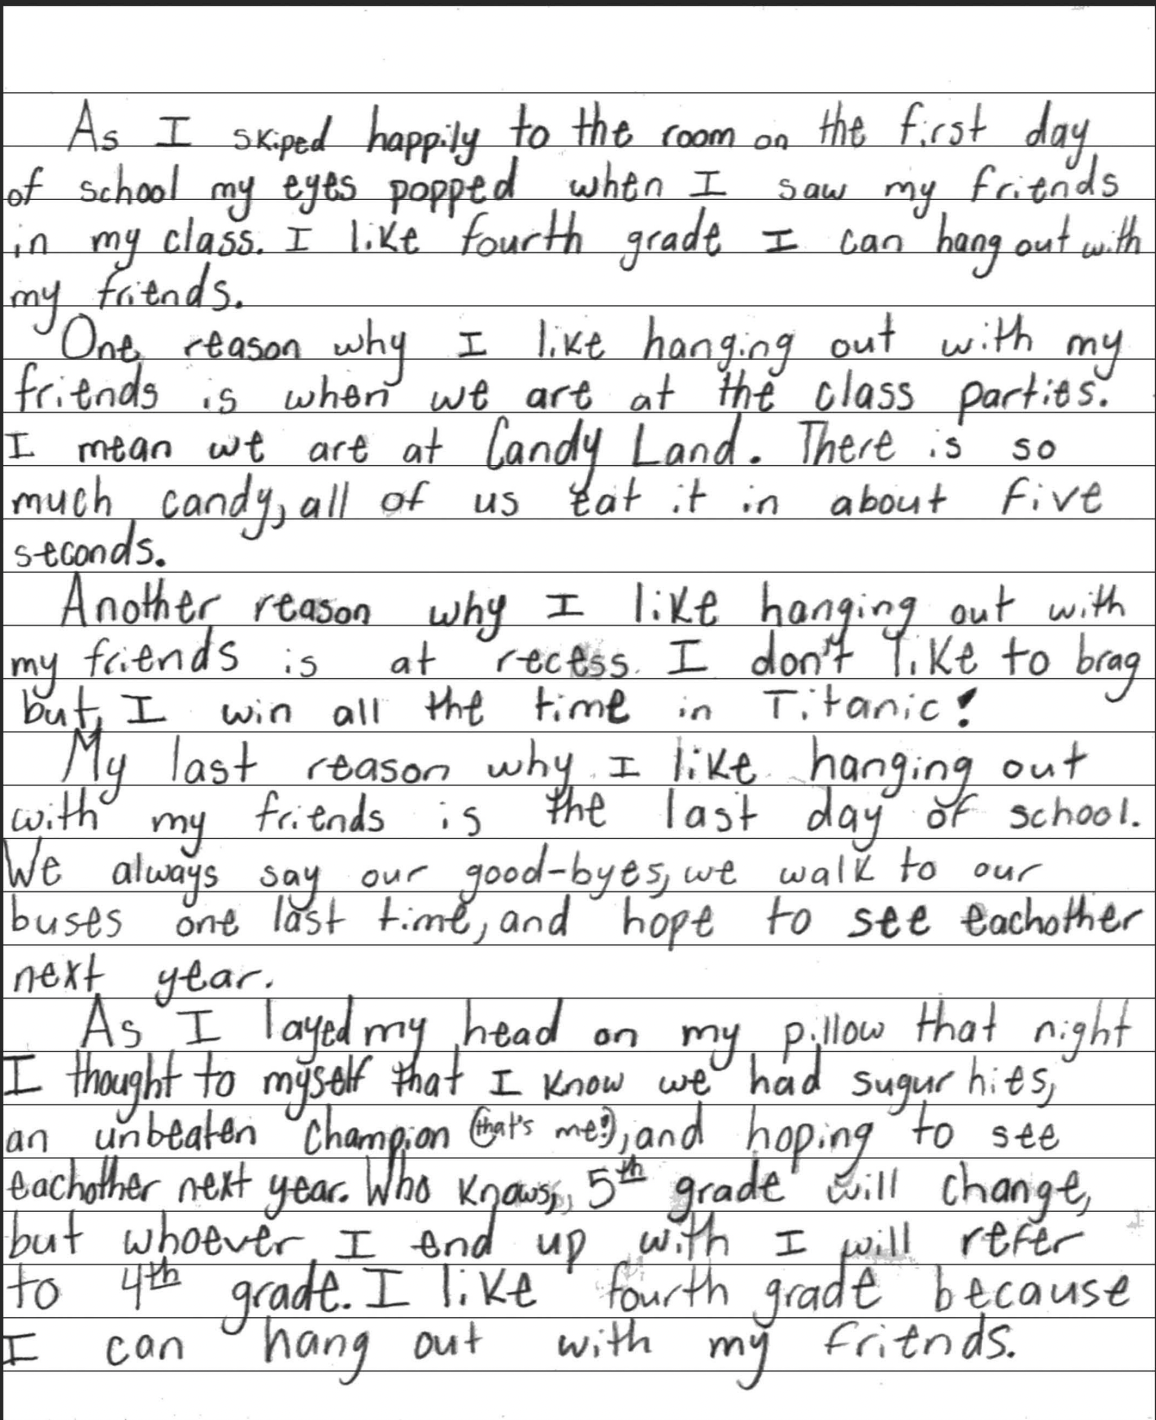 As I skiped happily to the room on the first day
of school my eyes popped when I saw my friends
in my class. I like fourth grade I can hang out with
my friends.
One reason why I like hanging out with my
friends is when we are at the class parties.
I mean we are at Candy Land. There is so
much candy, all of us eat it in about five
seconds.
Another reason why I like hanging out with
my friends is at recess. I don't like to brag
but, I win all the time in Titanic!
My last reason why I like hanging out
with my friends is the last day of school.
We always say our good-byes, we walk to our
buses one last time, and hope to see eachother
next year.
As I layed my head on my pillow that night
I thought to myself that I know we had sugur hies,
an unbeaten champion (that's me!), and hoping to see
eachother next year. Who knows, 5th grade will change,
but whoever I end up with I will refer
to 4th grade. I like fourth grade because
I can hang out with my friends.